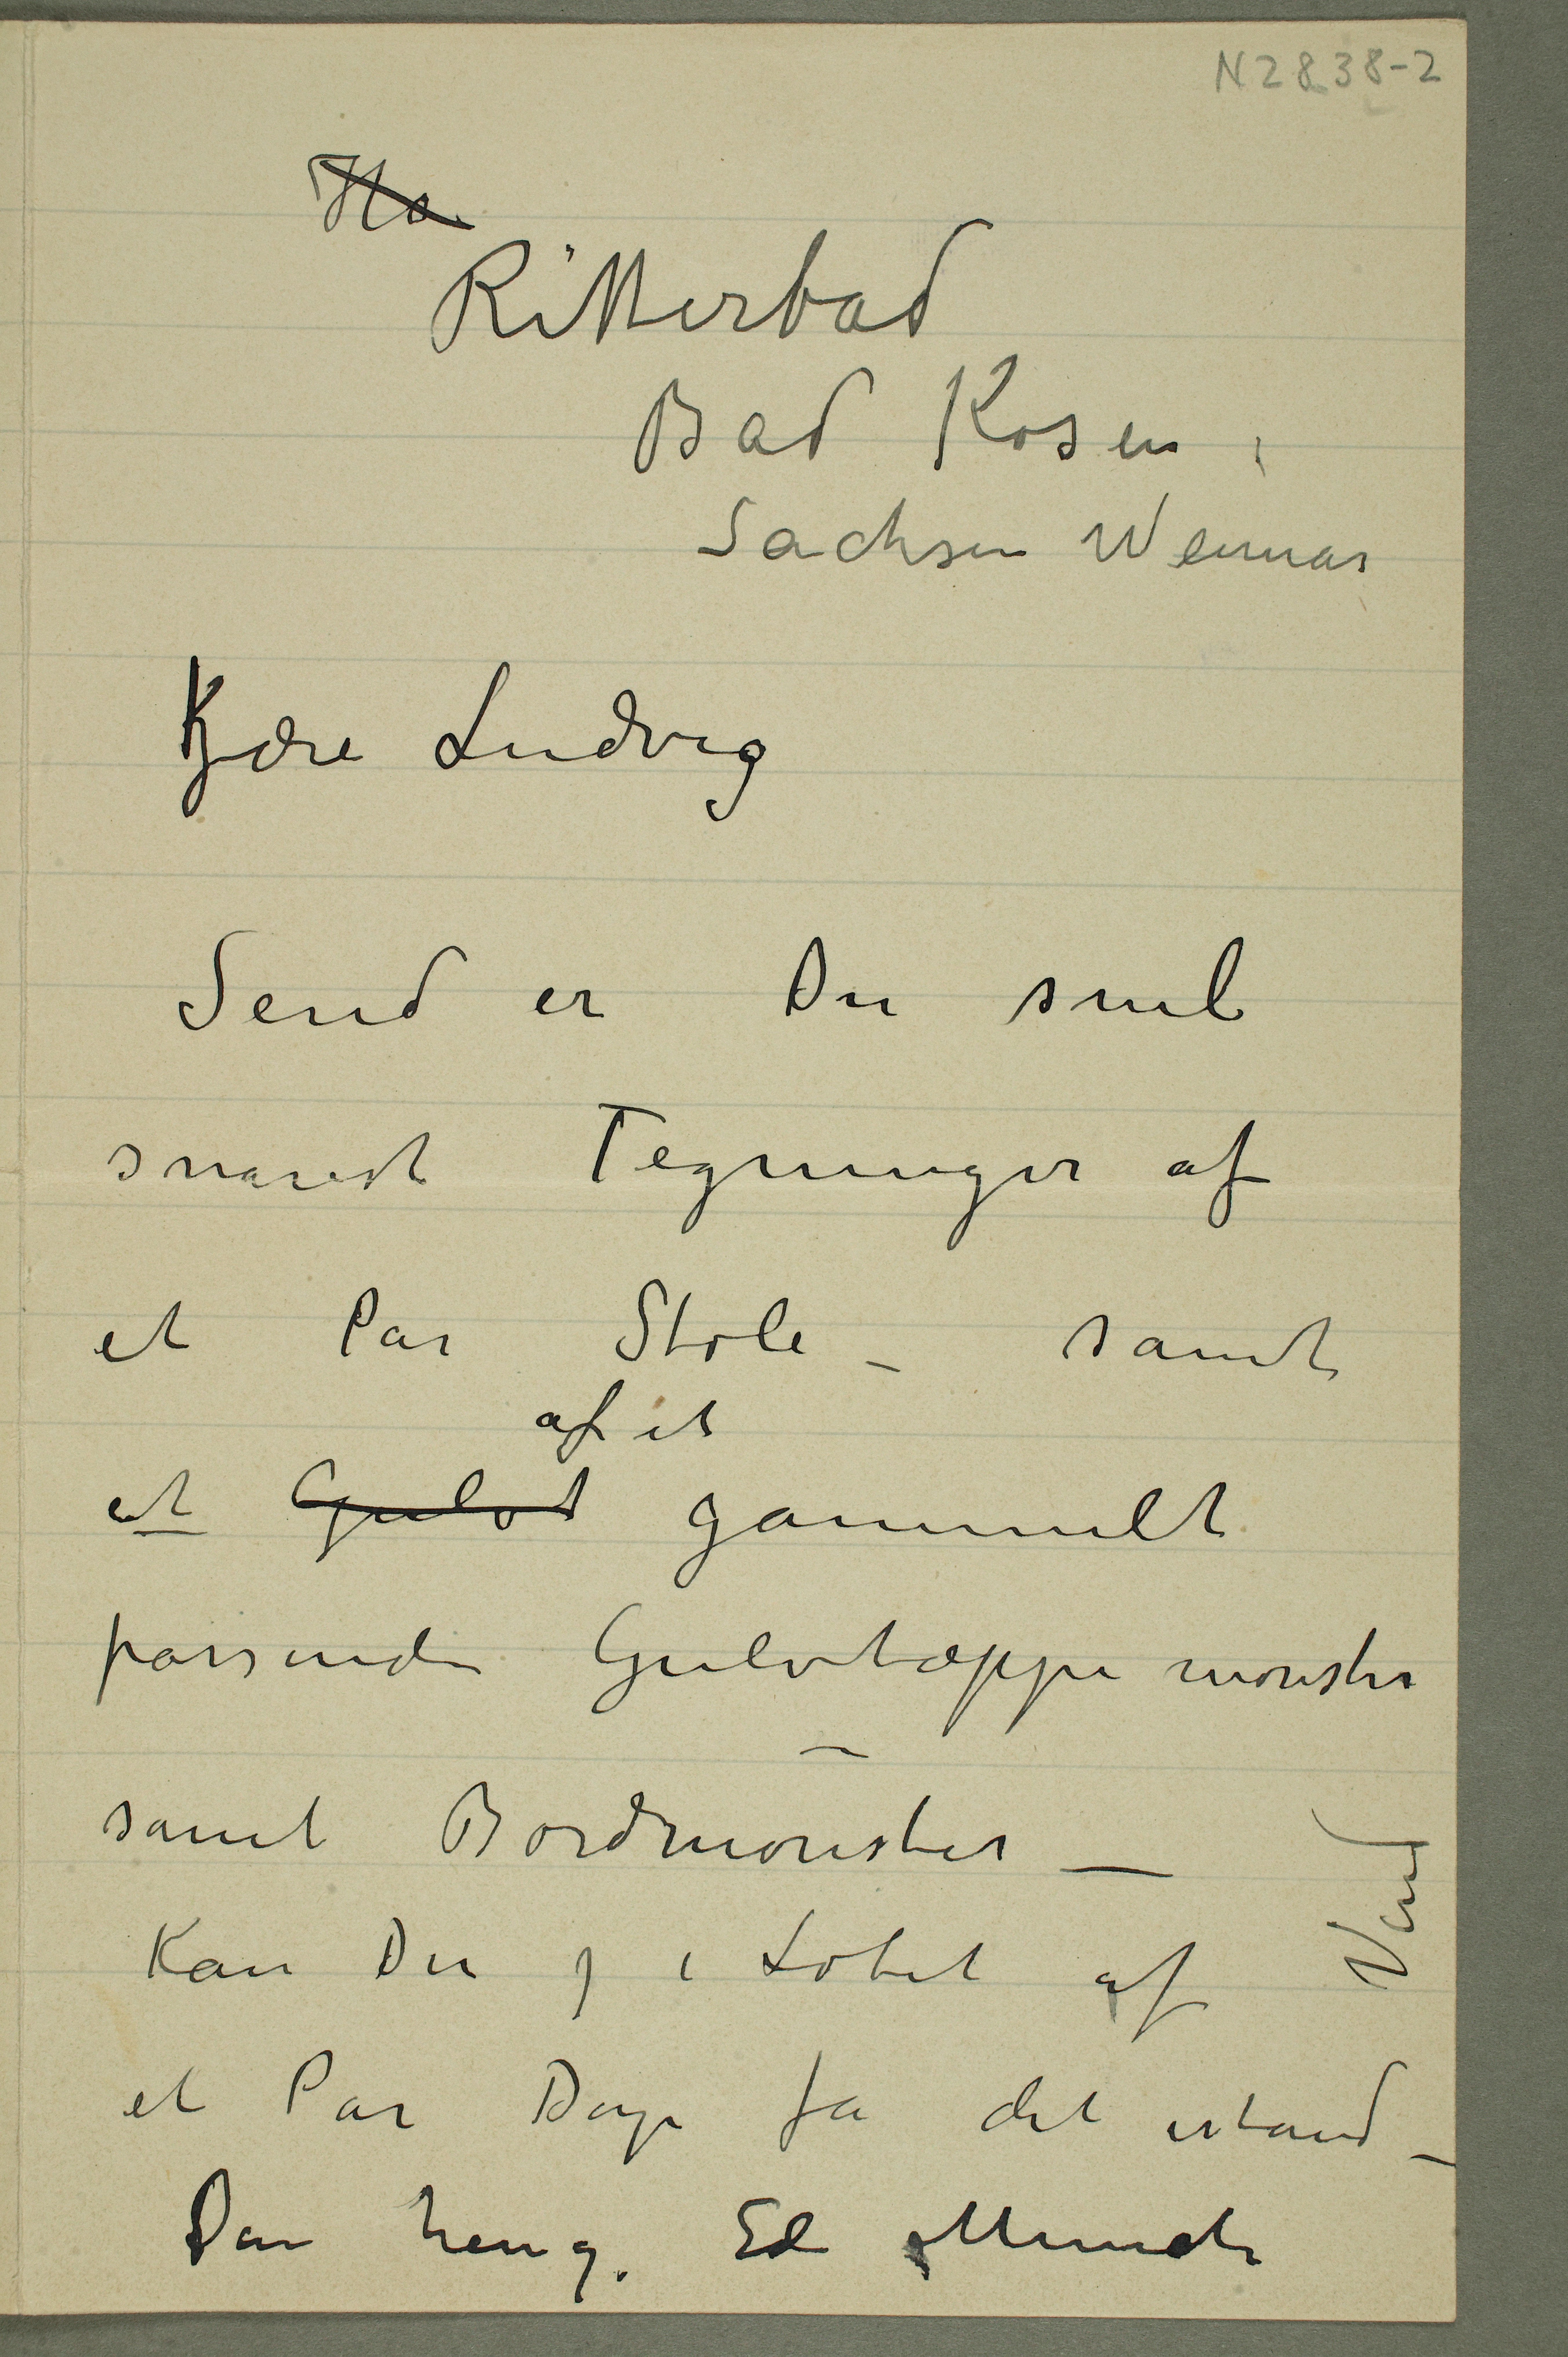 N2838-2
Ho
Ritterbad
Bad Kosen,
Sachsen Weimar
Kjære Ludvig
Send er Du snil
snarest Tegninger af
et Par Stole – samt
af et
et Gulvt gammelt
passende Gulvtæppe mønster
–
samt Bordmønster –
Kan Du j i Løbet af
et Par Dage få det istand –
Din heng. Ed Munch
Vend